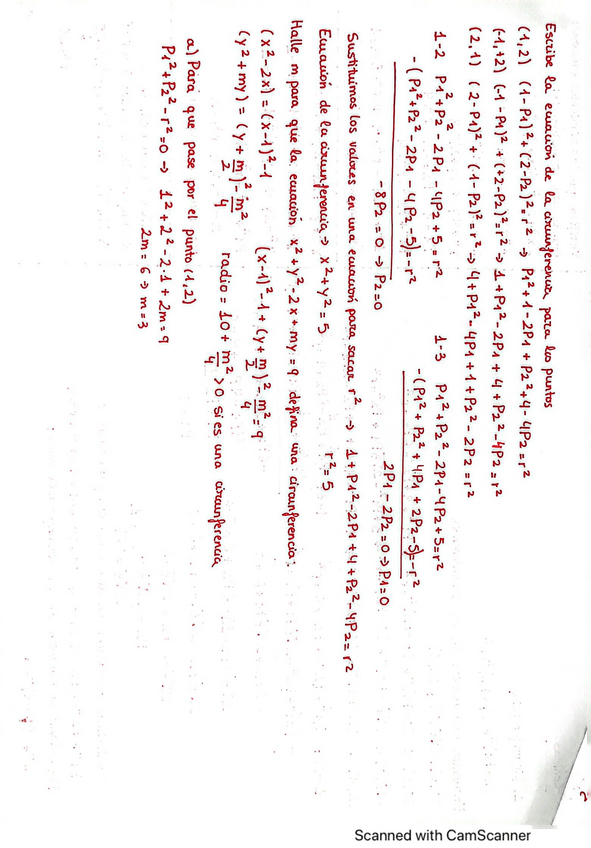 Escribe la ecuación de la circunferencia para los puntos
(1,2) (1-P1)²+(2-P2)²=r² → P1²+1-2P1+P2²+4-4P2=r²
(-1,+2) (-1-P1)²+(+2-P2)²=r² → 1+P1²-2P1+4+P2²-4P2=r²
(2,1) (2-P1)²+(1-P2)²=r² → 4+P1²-4P1+1+P2²-2P2=r²
1-2 P1²+P2²-2P1-4P2+5=r²
-(P1²+P2²-2P1-4P2-5)=-r²
-8P2=0 → P2=0
1-3 P1²+P2²-2P1-4P2+5=r²
-(P1²+P2²+4P1+2P2-5)=-r²
2P1-2P2=0 → P1=0
Sustituimos los valores en una ecuación para sacar r² → 1+P1²-2P1+4+P2²-4P2=r²
r²=5
Ecuación de la circunferencia → x²+y²=5
Halle m para que la ecuación x²+y²-2x+my=9 defina una circunferencia:
(x²-2x)=(x-1)²-1
(y²+my)=(y+m/2)²-m²/4
(x-1)²-1+(y+m/2)²-m²/4=9
radio=10+m²/4>0 si es una circunferencia
a) Para que pase por el punto (1,2)
P1²+P2²-r²=0 → 1²+2²-2·1+2m=9
2m=6 → m=3
Scanned with CamScanner